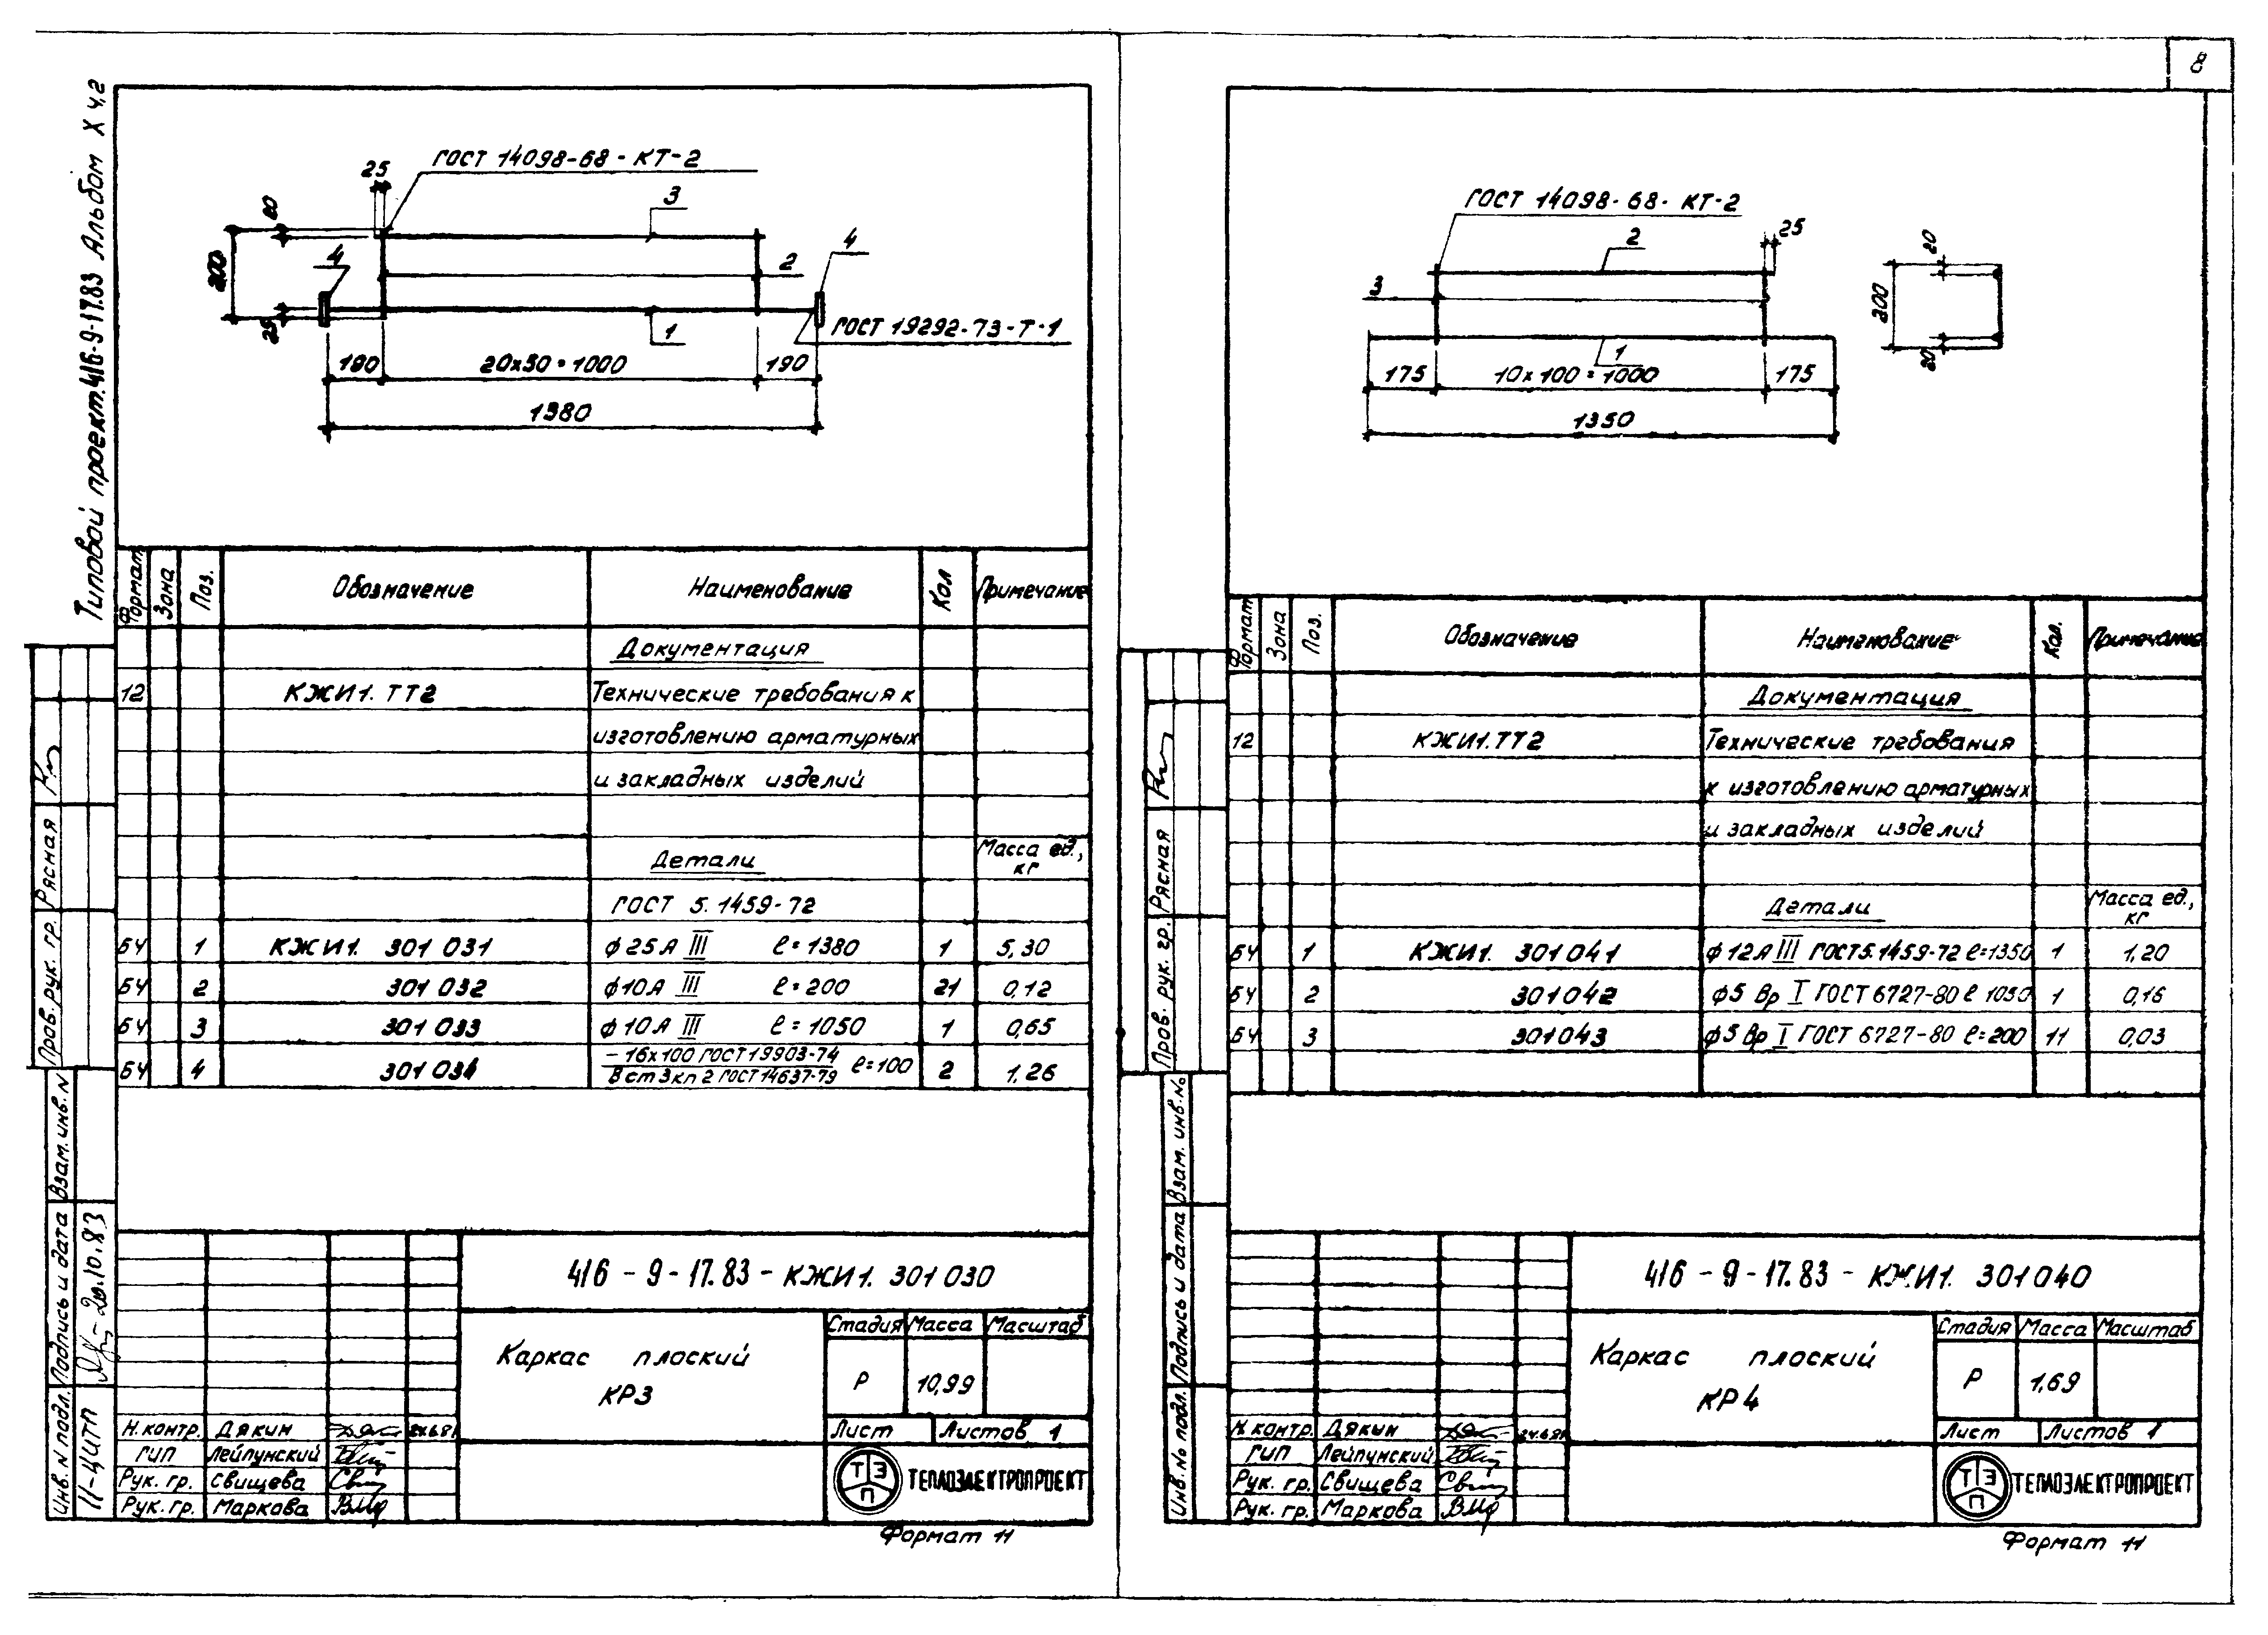 8
Типовой проект 416-9-17.83 Альбом X ч.2
ГОСТ 14098-68-КТ-2
25
20
3
200
4
4
2
25
1
ГОСТ 19292-73-Т-1
190
20х50=1000
190
1380
Формат
Зона
Поз.
Обозначение
Наименование
Кол
Примечание
Документация
12 КЖИ1. ТТ2 Технические требования к
изготовлению арматурных
и закладных изделий
Детали Масса ед., кг
ГОСТ 5.1459-72
БЧ 1 КЖИ1. 301 031 ф25А III ℓ=1380 1 5,30
БЧ 2 301 032 ф10А III ℓ=200 21 0,12
БЧ 3 301 033 ф10А III ℓ=1050 1 0,65
БЧ 4 301 034 -16х100 ГОСТ 19903-74 ℓ=100 2 1,26
В ст3кп2 ГОСТ 14637-79
Пров. рук. гр. Рясная
Взам. инв. N
Подпись и дата
20.10.83
Инв. N подл.
11-ЦИТП
416-9-17.83-КЖИ1. 301 030
Каркас плоский
КР3
Стадия Масса Масштаб
Р 10,99
Лист Листов 1
Н.контр. Дякин 24.6.81
ГИП Лейпунский
Рук. гр. Свищева
Рук. гр. Маркова
ТЭП
ТЕПЛОЭЛЕКТРОПРОЕКТ
Формат 11
ГОСТ 14098-68-КТ-2
25
2
3
1
20
200
20
175
10х100=1000
175
1350
Формат
Зона
Поз.
Обозначение
Наименование
Кол.
Примечание
Документация
12 КЖИ1.ТТ2 Технические требования
к изготовлению арматурных
и закладных изделий
Детали Масса ед., кг
БЧ 1 КЖИ1. 301 041 ф12А III ГОСТ5.1459-72 ℓ=1350 1 1,20
БЧ 2 301042 ф5 Вр I ГОСТ 6727-80 ℓ 1050 1 0,16
БЧ 3 301043 ф5 Вр I ГОСТ 6727-80 ℓ=200 11 0,03
Пров. рук. гр. Рясная
Взам. инв. №
Подпись и дата
Инв. № подл.
416-9-17.83-КЖИ1. 301040
Каркас плоский
КР4
Стадия Масса Масштаб
Р 1,69
Лист Листов 1
Н.контр. Дякин 24.6.81
ГИП Лейпунский
Рук. гр. Свищева
Рук. гр. Маркова
ТЭП
ТЕПЛОЭЛЕКТРОПРОЕКТ
Формат 11